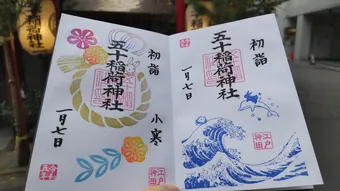 初詣
五十稲荷神社
一月七日
江戸
神田
初詣
小寒
五十稲荷神社
一月七日
江戸
神田
稲荷神社